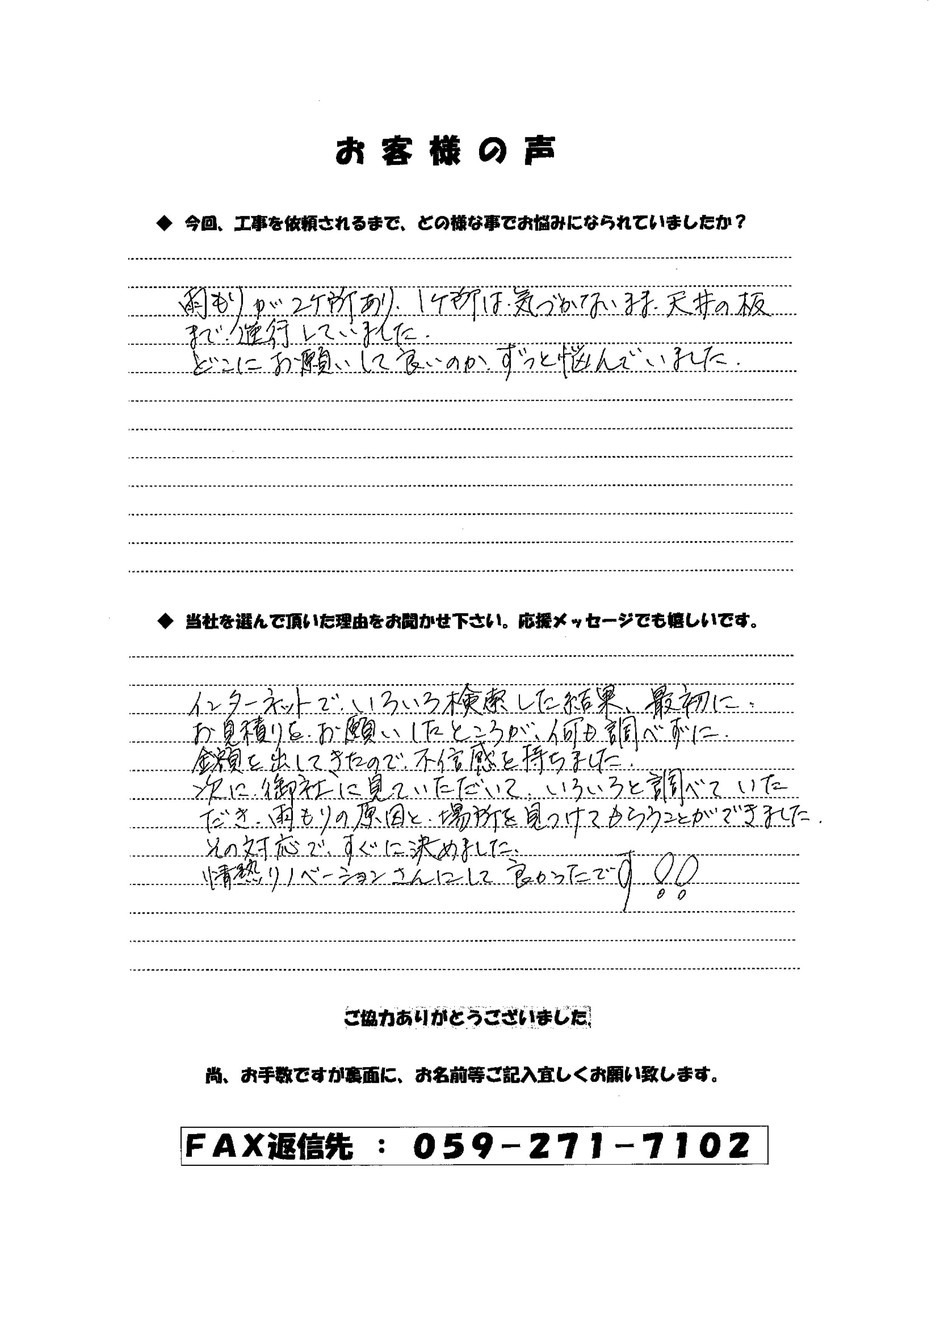 お客様の声
◆ 今回、工事を依頼されるまで、どの様な事でお悩みになられていましたか？
雨もりが2ケ所あり、1ケ所は、気づかないまま、天井の板
まで進行していました。
どこにお願いして良いのか、ずっと悩んでいました。
◆ 当社を選んで頂いた理由をお聞かせ下さい。応援メッセージでも嬉しいです。
インターネットで、いろいろ検索した結果、最初に、
お見積りを、お願いしたところが、何も調べずに、
金額を出してきたので、不信感を持ちました。
次に、御社に見ていただいて、いろいろと調べていた
だき、雨もりの原因と、場所を見つけてもらうことができました。
その対応で、すぐに決めました。
情熱リノベーションさんにして良かったです!!
ご協力ありがとうございました。
尚、お手数ですが裏面に、お名前等ご記入宜しくお願い致します。
ＦＡＸ返信先 ： 059－271－7102